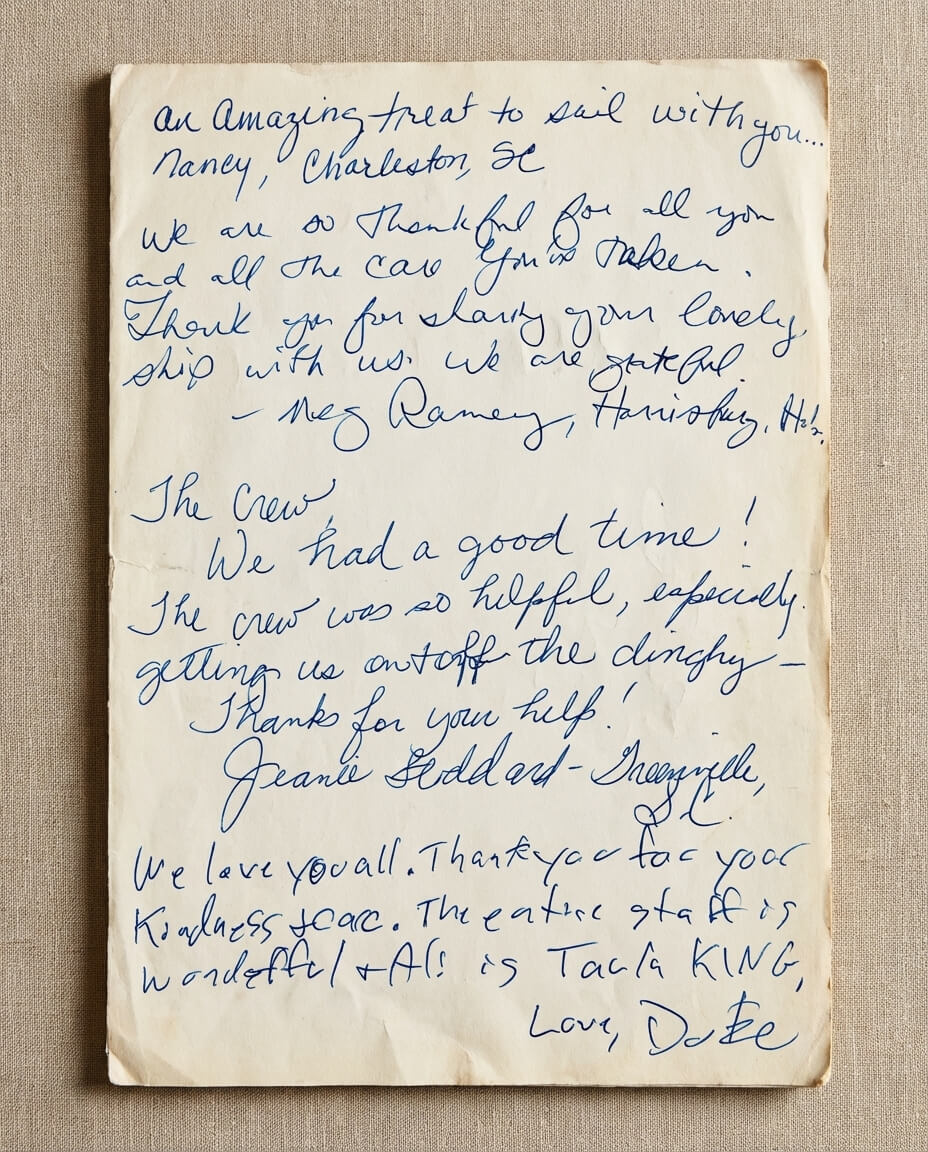 an Amazing treat to sail with you...
Nancy, Charleston, SC
We are so Thankful for all you
and all the care You've Taken.
Thank you for sharing your lovely
ship with us. We are grateful.
- Meg Ramey, Harrisburg,
The Crew,
We had a good time!
The crew was so helpful, especially
getting us on+off the dinghy -
Thanks for your help!
Jeanie Geddard - Greenville,
S.C.
We love you all. Thank you for your
Kindness + care. The entire staff is
wonderful + Ali is KING,
Love, Duke